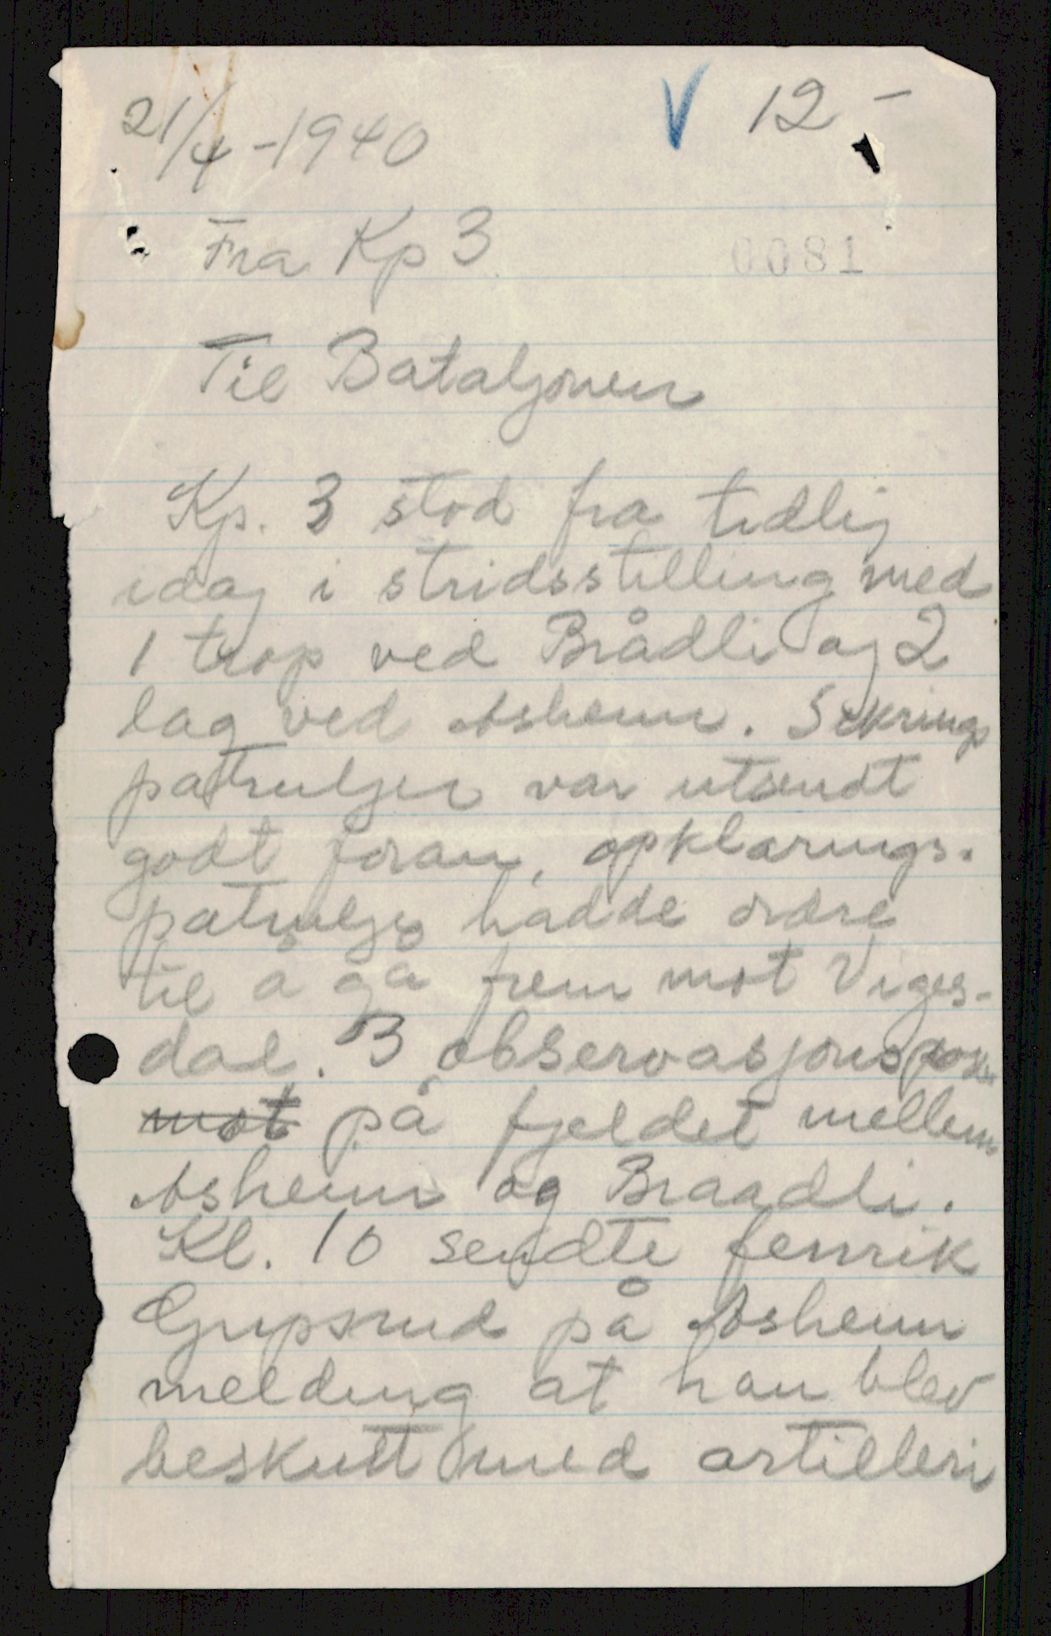 21/4-1940 V 12-
Fra Kp 3
0081
Til Bataljonen
Kp. 3 stod fra tidlig
idag i stridsstilling med
1 trop ved Brådli og 2
lag ved Asheim. Sikrings
patruljer var utsendt
godt foran, opklarings-
patrulje hadde ordre
til å gå frem mot Viges-
dal. 3 observasjonsposter
mot på fjeldet mellem
Asheim og Braadli.
Kl. 10 sendte fenrik
Gripsrud på Asheim
melding at han blev
beskutt med artilleri